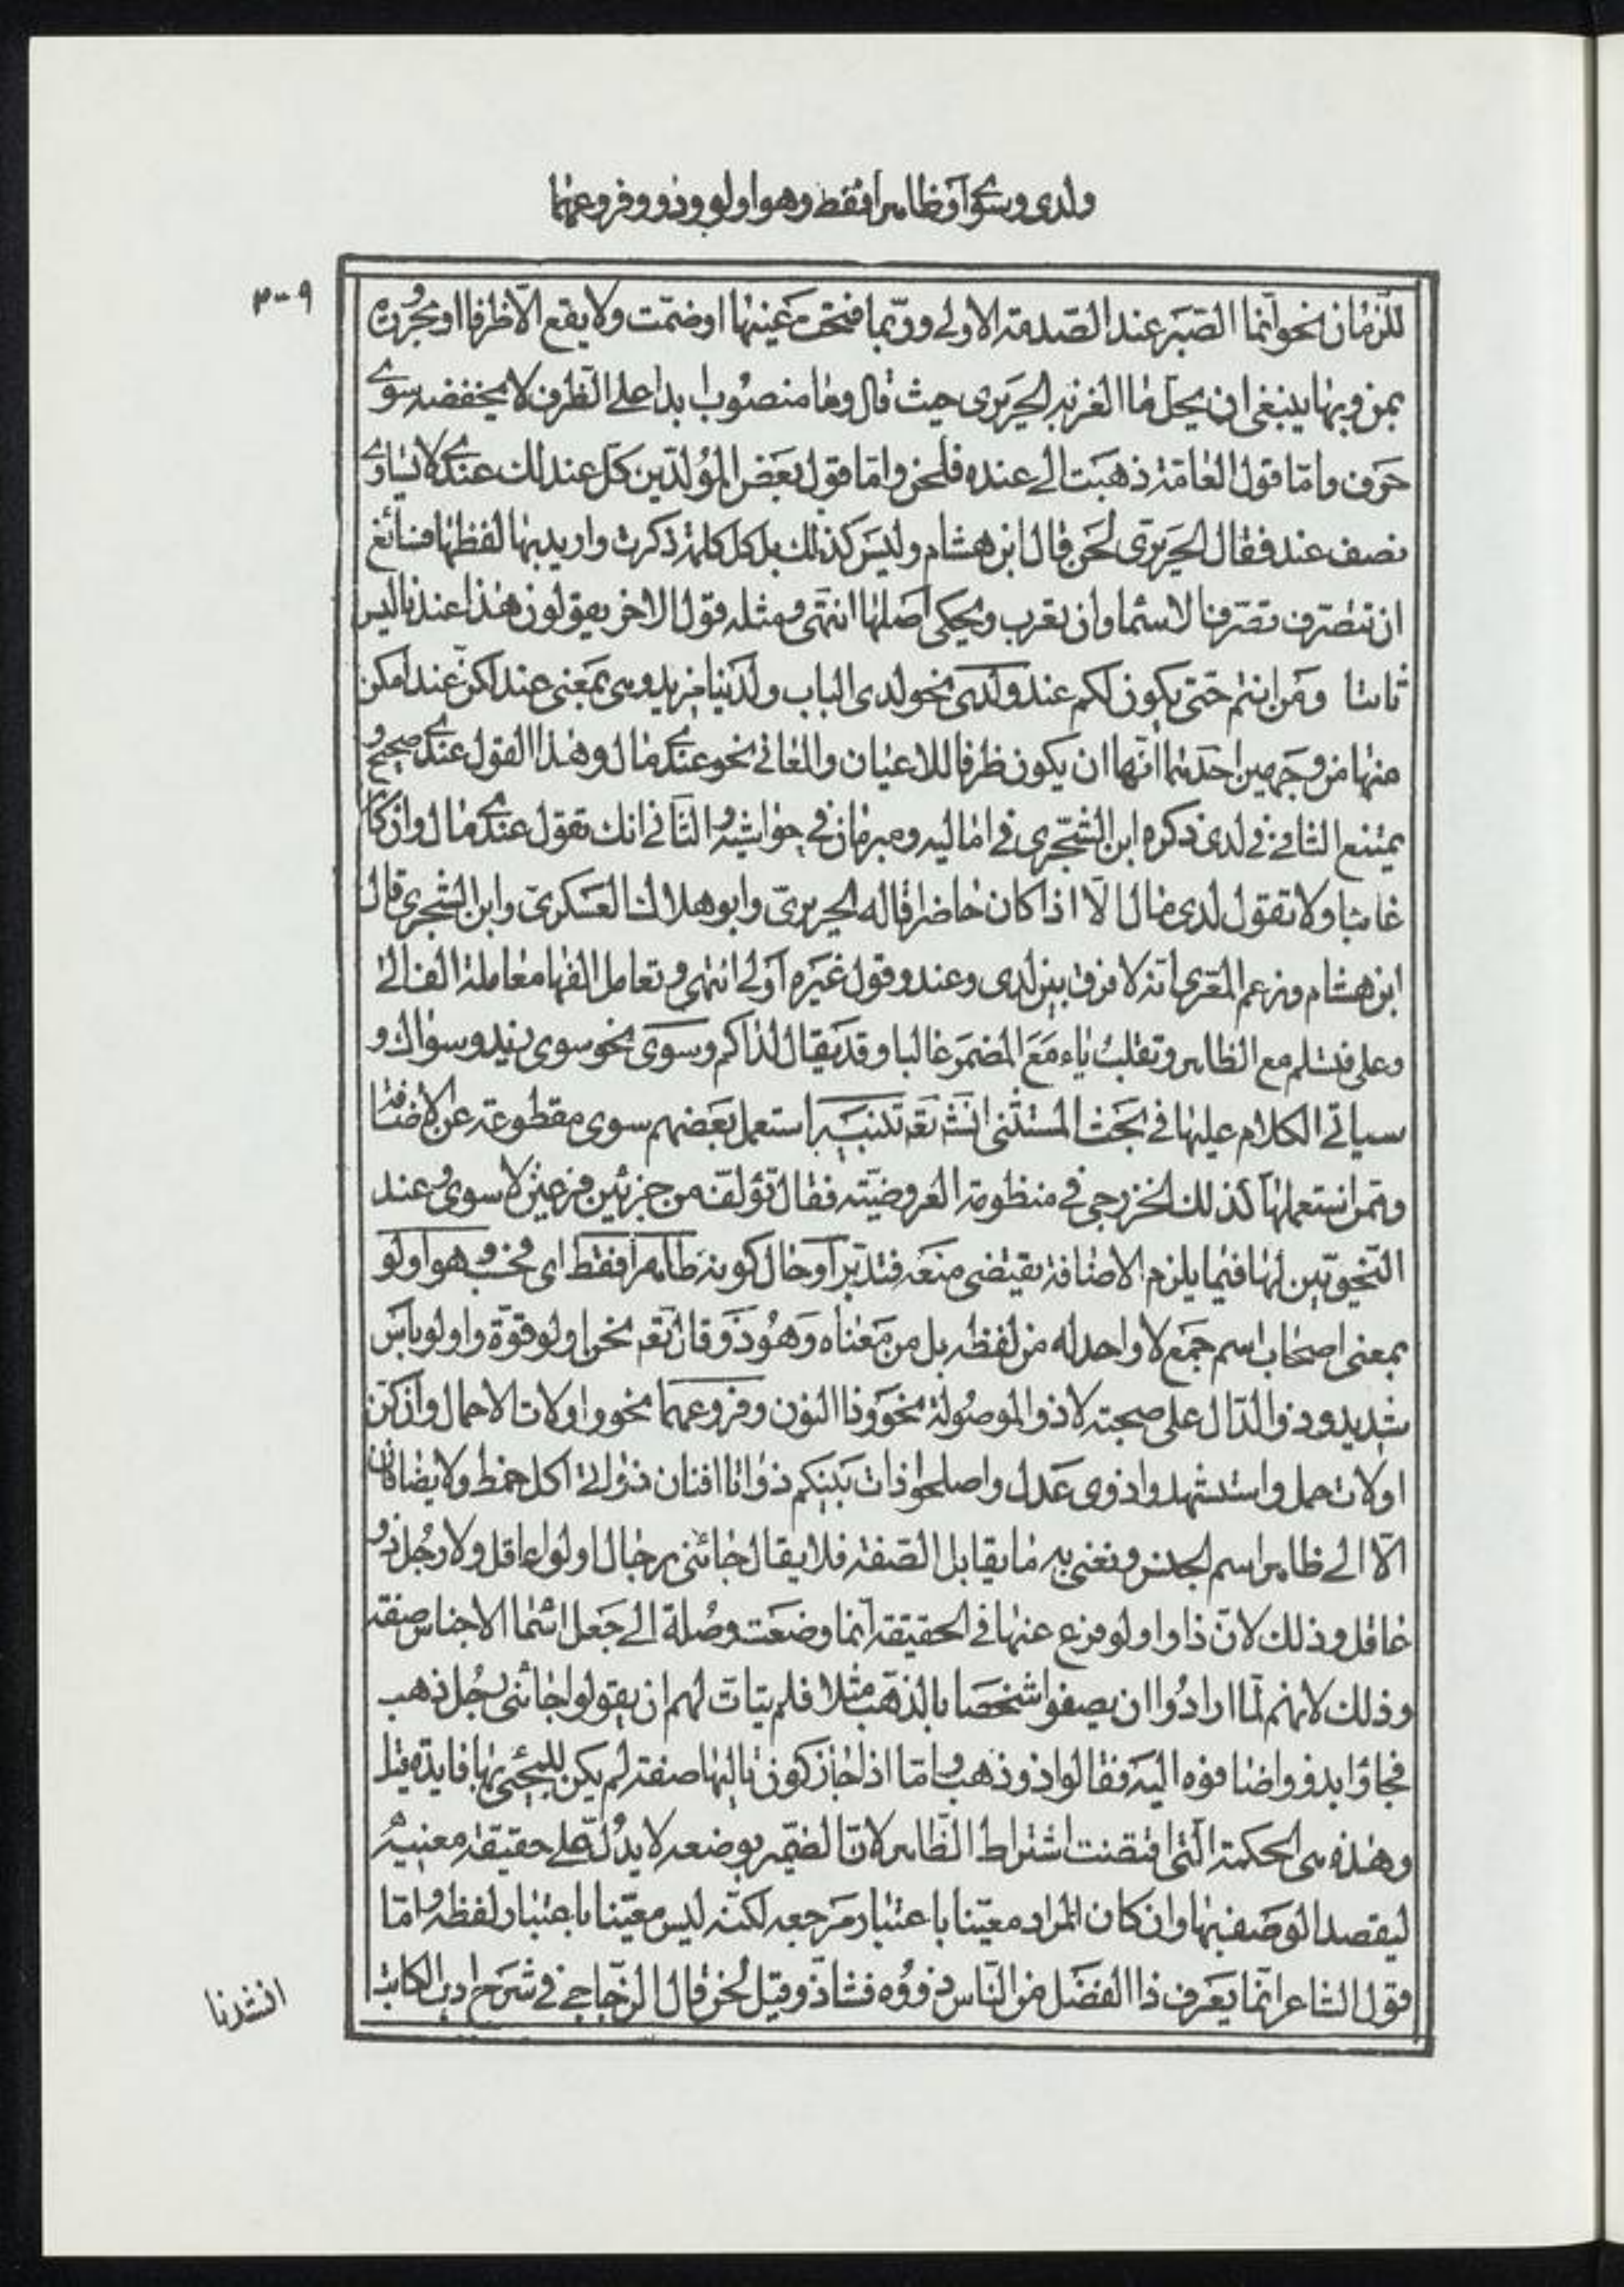 ولدى وسوى أو ظاهرا فقط وهو اولو وذو وفروعهما
٣٠٩
للزمان نحو انما الصبر عند الصدمة الاولى وربما فتحت عينها او ضمت ولا يقع الا ظرفا او مجرورة
بمن وبها ينبغى ان يحل ما الغز به الحريرى حيث قال وما منصوب ابدا على الظرف لا يخفضه سوى
حرف واما قول العامة ذهبت الى عنده فلحن واما قول بعض المولدين كل عند لك عندى لا يساوى
نصف عند فقال الحريرى لحن قال ابن هشام وليس كذلك بل كل كلمة ذكرت واريد بها لفظها فسائغ
ان تتصرف تصرف الاسما وان تعرب ويحكى اصلها انتهى ومثله قول الاخر يقولون هذا عندنا ليس
ثابتا ومن انتم حتى يكون لكم عند ولدى نحو لدى الباب ولدينا مزيد وهى بمعنى عند لكن عند امكن
منها من وجهين احدهما انها ان يكون ظرفا للاعيان والمعانى نحو عندى مال وهذا القول عندى صحيح و
يمتنع الثانى فى لدى ذكره ابن الشجرى فى اماليه ومبرمان فى حواشيه والثانى انك تقول عندى مال وان كان
غائبا ولا تقول لدى مال الا اذا كان حاضرا قاله الحريرى وابو هلال العسكرى وابن الشجرى قال
ابن هشام وزعم المعرى انه لا فرق بين لدى وعند وقول غيره اولى انتهى وتعامل الفها معاملة الف الى
وعلى فتسلم مع الظاهر وتقلب ياء مع المضمر غالبا وقد يقال لذاكم وسوى نحو سوى زيد وسواك و
سياتى الكلام عليها فى بحث المستثنى انش تعه تنبيه استعمل بعضهم سوى مقطوعة عن الاضافة
وممن استعملها كذلك الخزرجى فى منظومة العروضية فقال تولفه من جزئين فرعين لا سوى وعند
النحويين لها فيما يلزم الاضافة يقتضى منعه فتدبر او حال كونه ظاهرا فقط اى فحسب وهو اولو
بمعنى اصحاب اسم جمع لا واحد له من لفظه بل من معناه وهو ذو قال تعه نحن اولو قوة واولو باس
شديد وذو الدال على صحبة لا ذو الموصولة نحو وذا النون وفروعهما نحو واولات الاحمال وان كن
اولات حمل واستشهدوا ذوى عدل واصلحوا ذات بينكم ذواتا افنان ذواتى اكل خمط ولا يضافان
الا الى ظاهر اسم الجنس ونعنى به ما يقابل الصفة فلا يقال جائنى رجال اولوا عاقل ولا رجل ذو
عاقل وذلك لان ذا واولو فرع عنها فى الحقيقة انما وضعت وصلة الى جعل اسما الاجناس صفة
وذلك لانهم لما ارادوا ان يصفوا شخصا بالذهب مثلا فلم يتات لهم ان يقولوا جائنى رجل ذهب
فجاؤا بذو واضافوه اليه فقالوا ذو ذهب واما اذا جاز كون تاليها صفة لم يكن للمجئ بها فايدة قيل
وهذه هى الحكمة التى اقتضت اشتراط الظاهر لان الضمير بوضعه لا يدل على حقيقة معنييه
ليقصد الوصف بها وان كان المراد معينا باعتبار مرجعه لكنه ليس معينا باعتبار لفظه واما
قول الشاعر انما يعرف ذا الفضل من الناس ذووه فشاذ وقيل لحن قال الزجاجى فى شرح ادب الكاتب
انشدنا